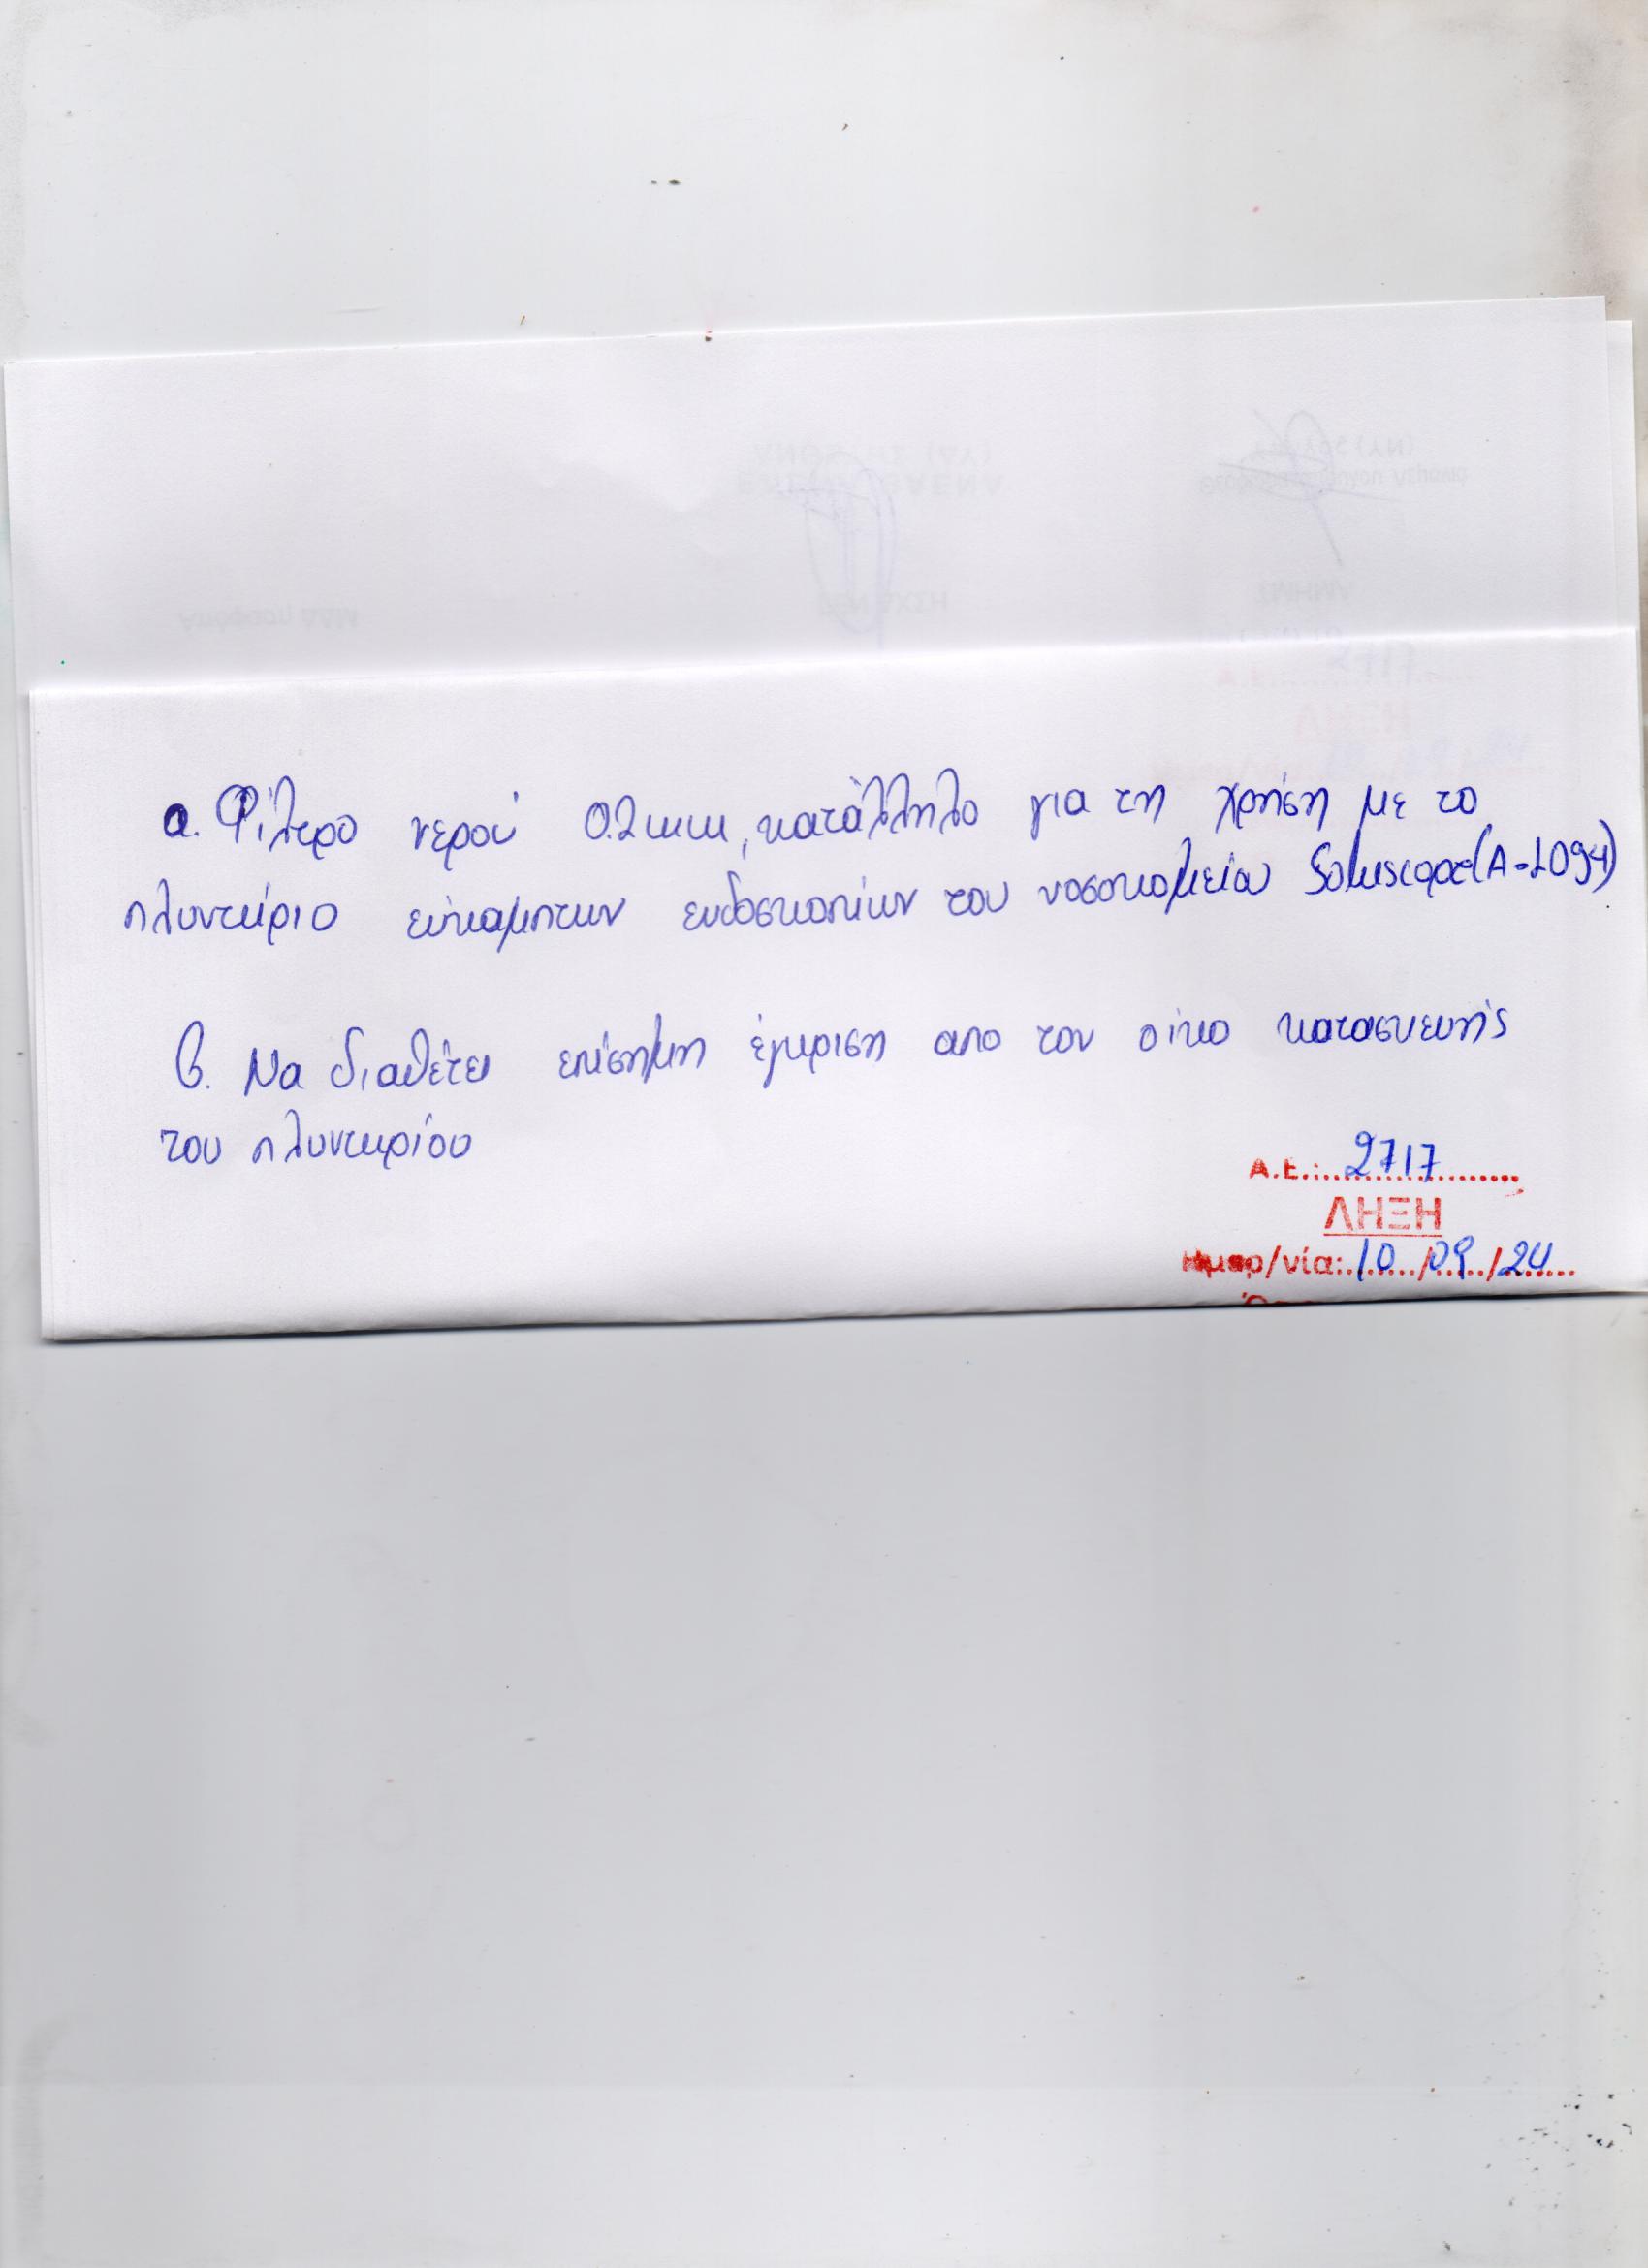 α. Φίλτρο νερού 0.2μm, κατάλληλο για τη χρήση με το
πλυντήριο εύκαμπτων ενδοσκοπίων του νοσοκομείου Soluscope (A-1094)
β. Να διαθέτει επίσημη έγκριση απο τον οίκο κατασκευής
του πλυντηρίου
Α.Ε.: 2717
ΛΗΞΗ
Ημερ/νία: 10/09/24